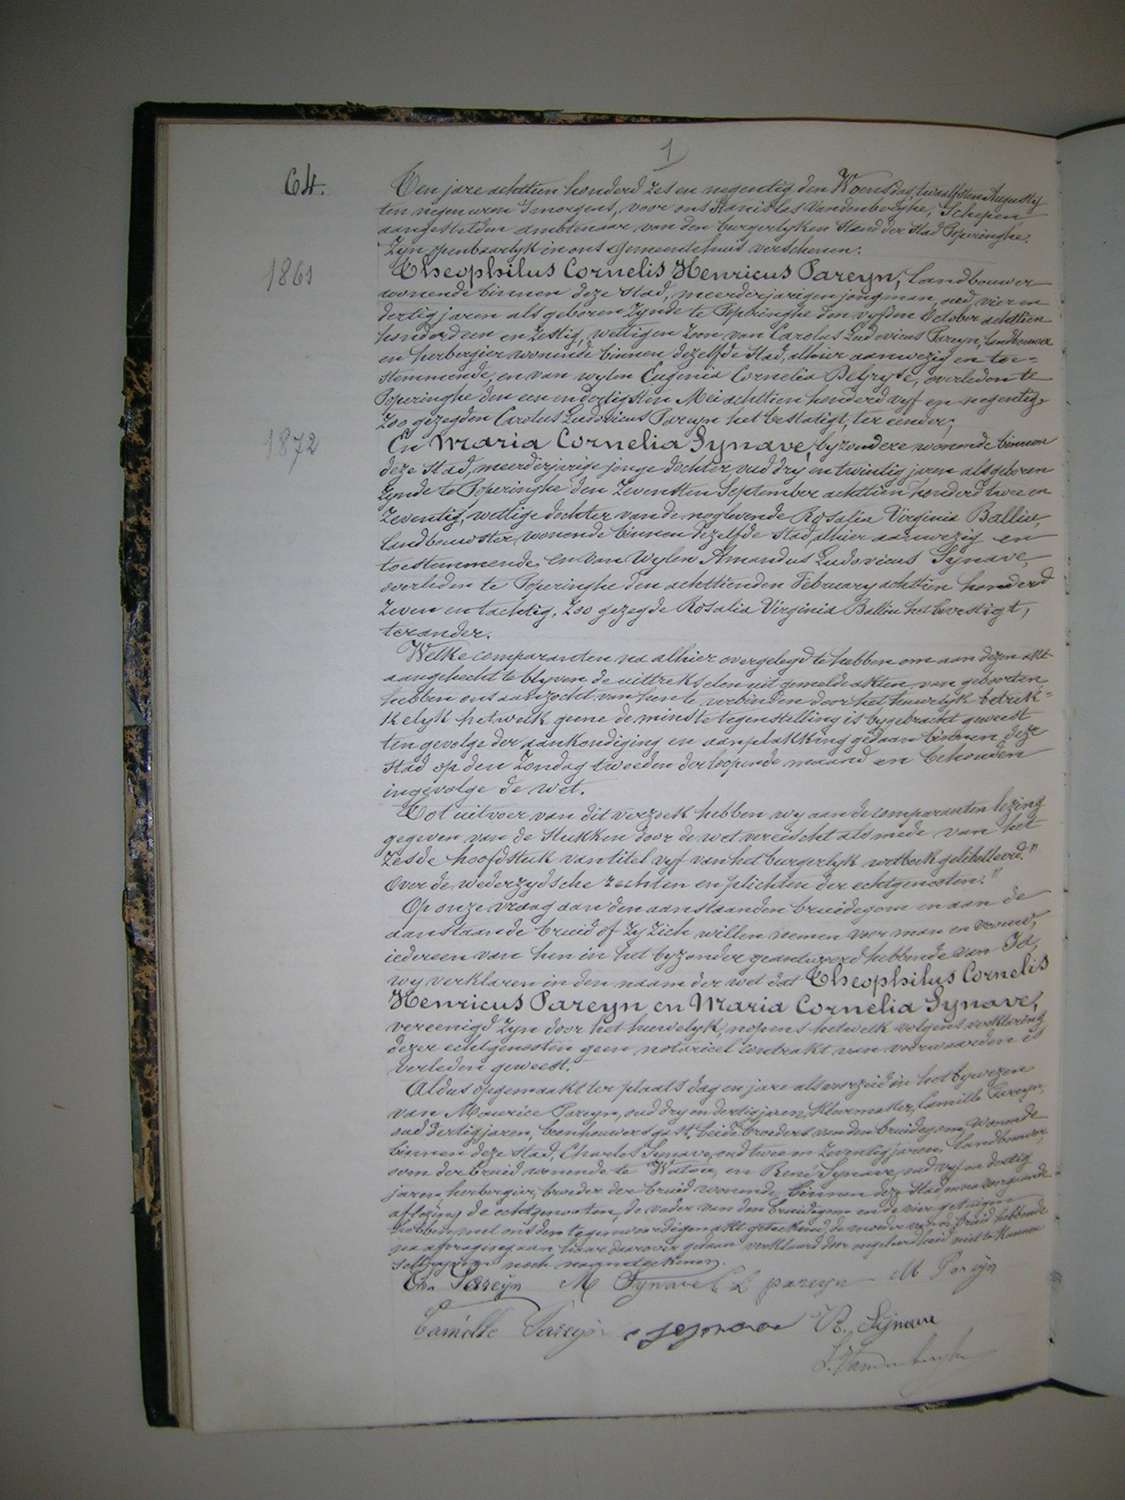 1
64.
Ten jare achttien honderd zes en negentig den Woensdag twaalfsten Augusty
ten negen uren 's morgens, voor ons Stanislas Vandenberghe, Schepen
aangestelden ambtenaar van den burgerlyken Stand der Stad Poperinghe,
Zyn openbaarlyk in ons gemeentehuis verschenen:
1861
Theophilus Cornelis Henricus Pareyn, landbouwer
wonende binnen deze stad, meerderjarigen jongman, oud vier en
dertig jaren als geboren Zynde te Poperinghe den vyfden October achttien
honderd een en Zestig, wettigen Zoon van Carolus Ludovicus Pareyn, landbouwer
en herbergier wonende binnen dezelfde Stad, alhier aanwezig en toe=
stemmende, en van wylen Eugenia Cornelia Degryse, overleden te
Poperinghe den een en dertigsten Mei achttien honderd vyf en negentig,
Zoo gezegden Carolus Ludovicus Pareyn het bestatigt, ter eender;
1872
En Maria Cornelia Synave, byzondere wonende binnen
deze Stad, meerderjarige jonge dochter, oud dry en twintig jaren als geboren
Zynde te Poperinghe den Zevensten September achttien honderd twee en
Zeventig, wettige dochter van de nog levende Rosalia Virginia Balliu,
landbouwster, wonende binnen dezelfde Stad, alhier aanwezig en
toestemmende, en van Wylen Amandus Ludovicus Synave,
overleden te Poperinghe den achttienden February achttien honderd
Zeven en tachtig, Zoo gezegde Rosalia Virginia Balliu het bevestigt,
ter ander.
Welke comparanten na alhier overgelegd te hebben om aan dezen akt
aangehecht te blyven de uittreksels uit gemelde akten van geboorten,
hebben ons aanzocht van hen te verbinden door het huwelyk betrek=
kelyk hetwelk geene de minste tegenstelling is bygebracht geweest
ten gevolge der aankondiging en aanplakking gedaan binnen deze
Stad op den Zondag tweeden der loopende maand en behouden
ingevolge de wet.
Tot uitvoer van dit verzoek hebben wy aan de comparanten lezing
gegeven van de stukken door de wet vereischt alsmede van het
Zesde hoofdstuk van titel vyf van het burgerlyk wetboek getitelleerd "
Over de wederzydsche rechten en plichten der echtgenooten."
Op onze vraag aan den aanstaanden bruidegom en aan de
aanstaande bruid of Zy Zich willen nemen voor man en vrouw,
iedereen van hun in het byzonder geantwoord hebbende van Ja,
wy verklaren in den naam der wet dat Theophilus Cornelis
Henricus Pareyn en Maria Cornelia Synave,
vereenigd Zyn door het huwelyk, nopens hetwelk volgens verklaring
dezer echtgenooten geen notarieel contrakt van voorwaarden is
verleden geweest.
Aldus opgemaakt ter plaats dag en jare als voorzeid in het bywezen
van Maurice Pareyn, oud dry en dertig jaren, Camille Pareyn,
oud dertig jaren, beide broeders van den bruidegom, wonende
binnen deze Stad, Charles Synave, oud twee en Zeventig jaren, landbouwer,
oom der bruid wonende te Watou, en René Synave, oud vyf en dertig
jaren, herbergier, broeder der bruid wonende binnen deze Stad en na voorgaande
aflezing de echtgenooten, de vader van den bruidegom en de vier getuigen
hebben met ons den tegenwoordigen akt geteekend, de moeder van de bruid hebbende
na afvraging aan haar daarover gedaan verklaard door ongeleerdheid niet te kunnen
schryven noch naamteekenen.
Th. Pareyn M Synave C L pareyn M Pareyn
Camille Pareyn c synave R. Synave
S. Vandenberghe